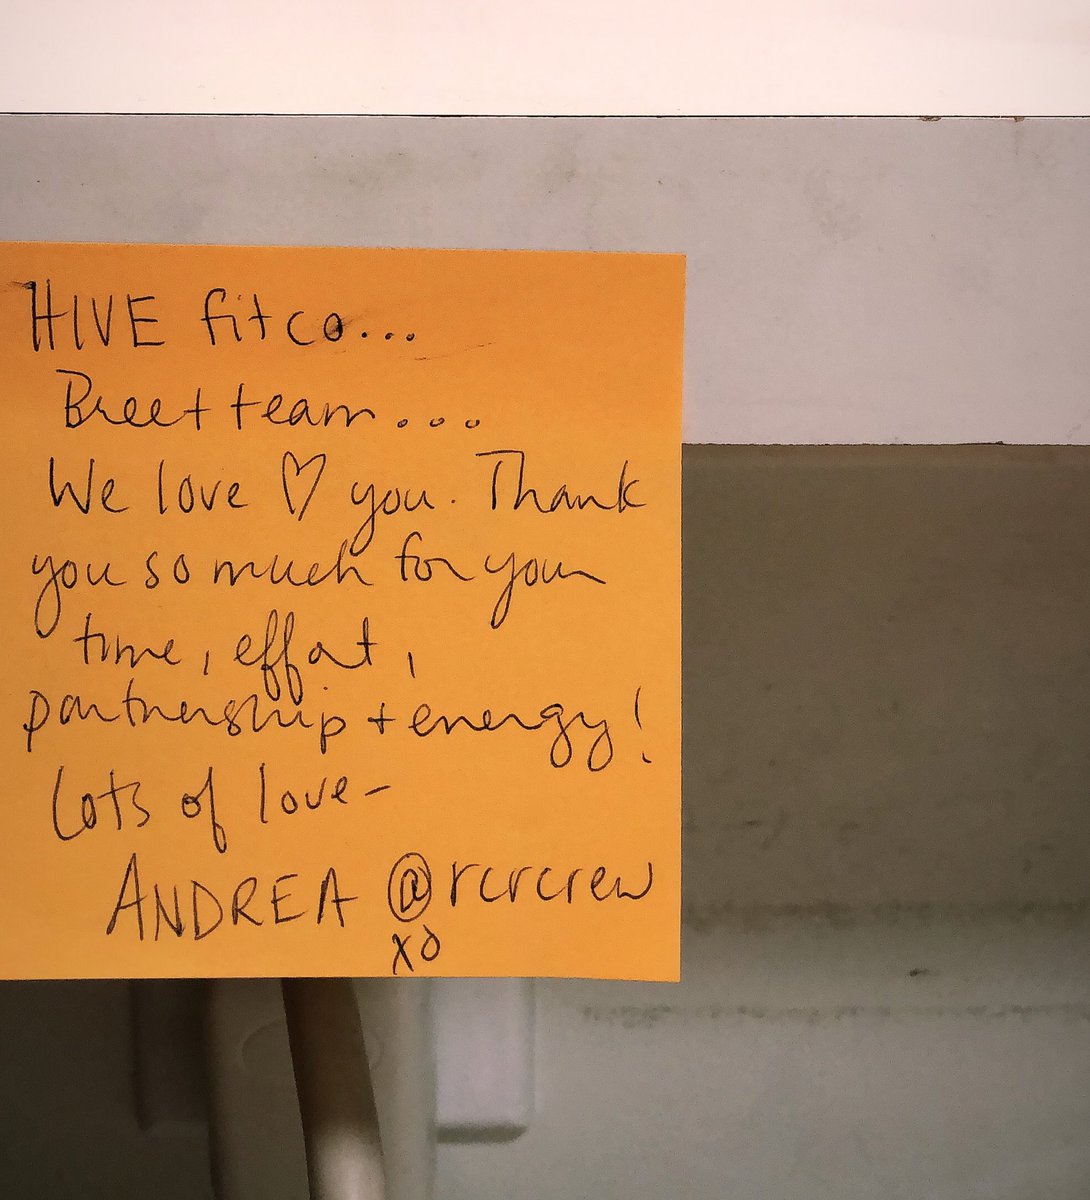 HIVE fitco...
Breet team...
We love ♡ you. Thank
you so much for your
time, effort,
partnership + energy!
Lots of love-
ANDREA @rcrcrew
xo